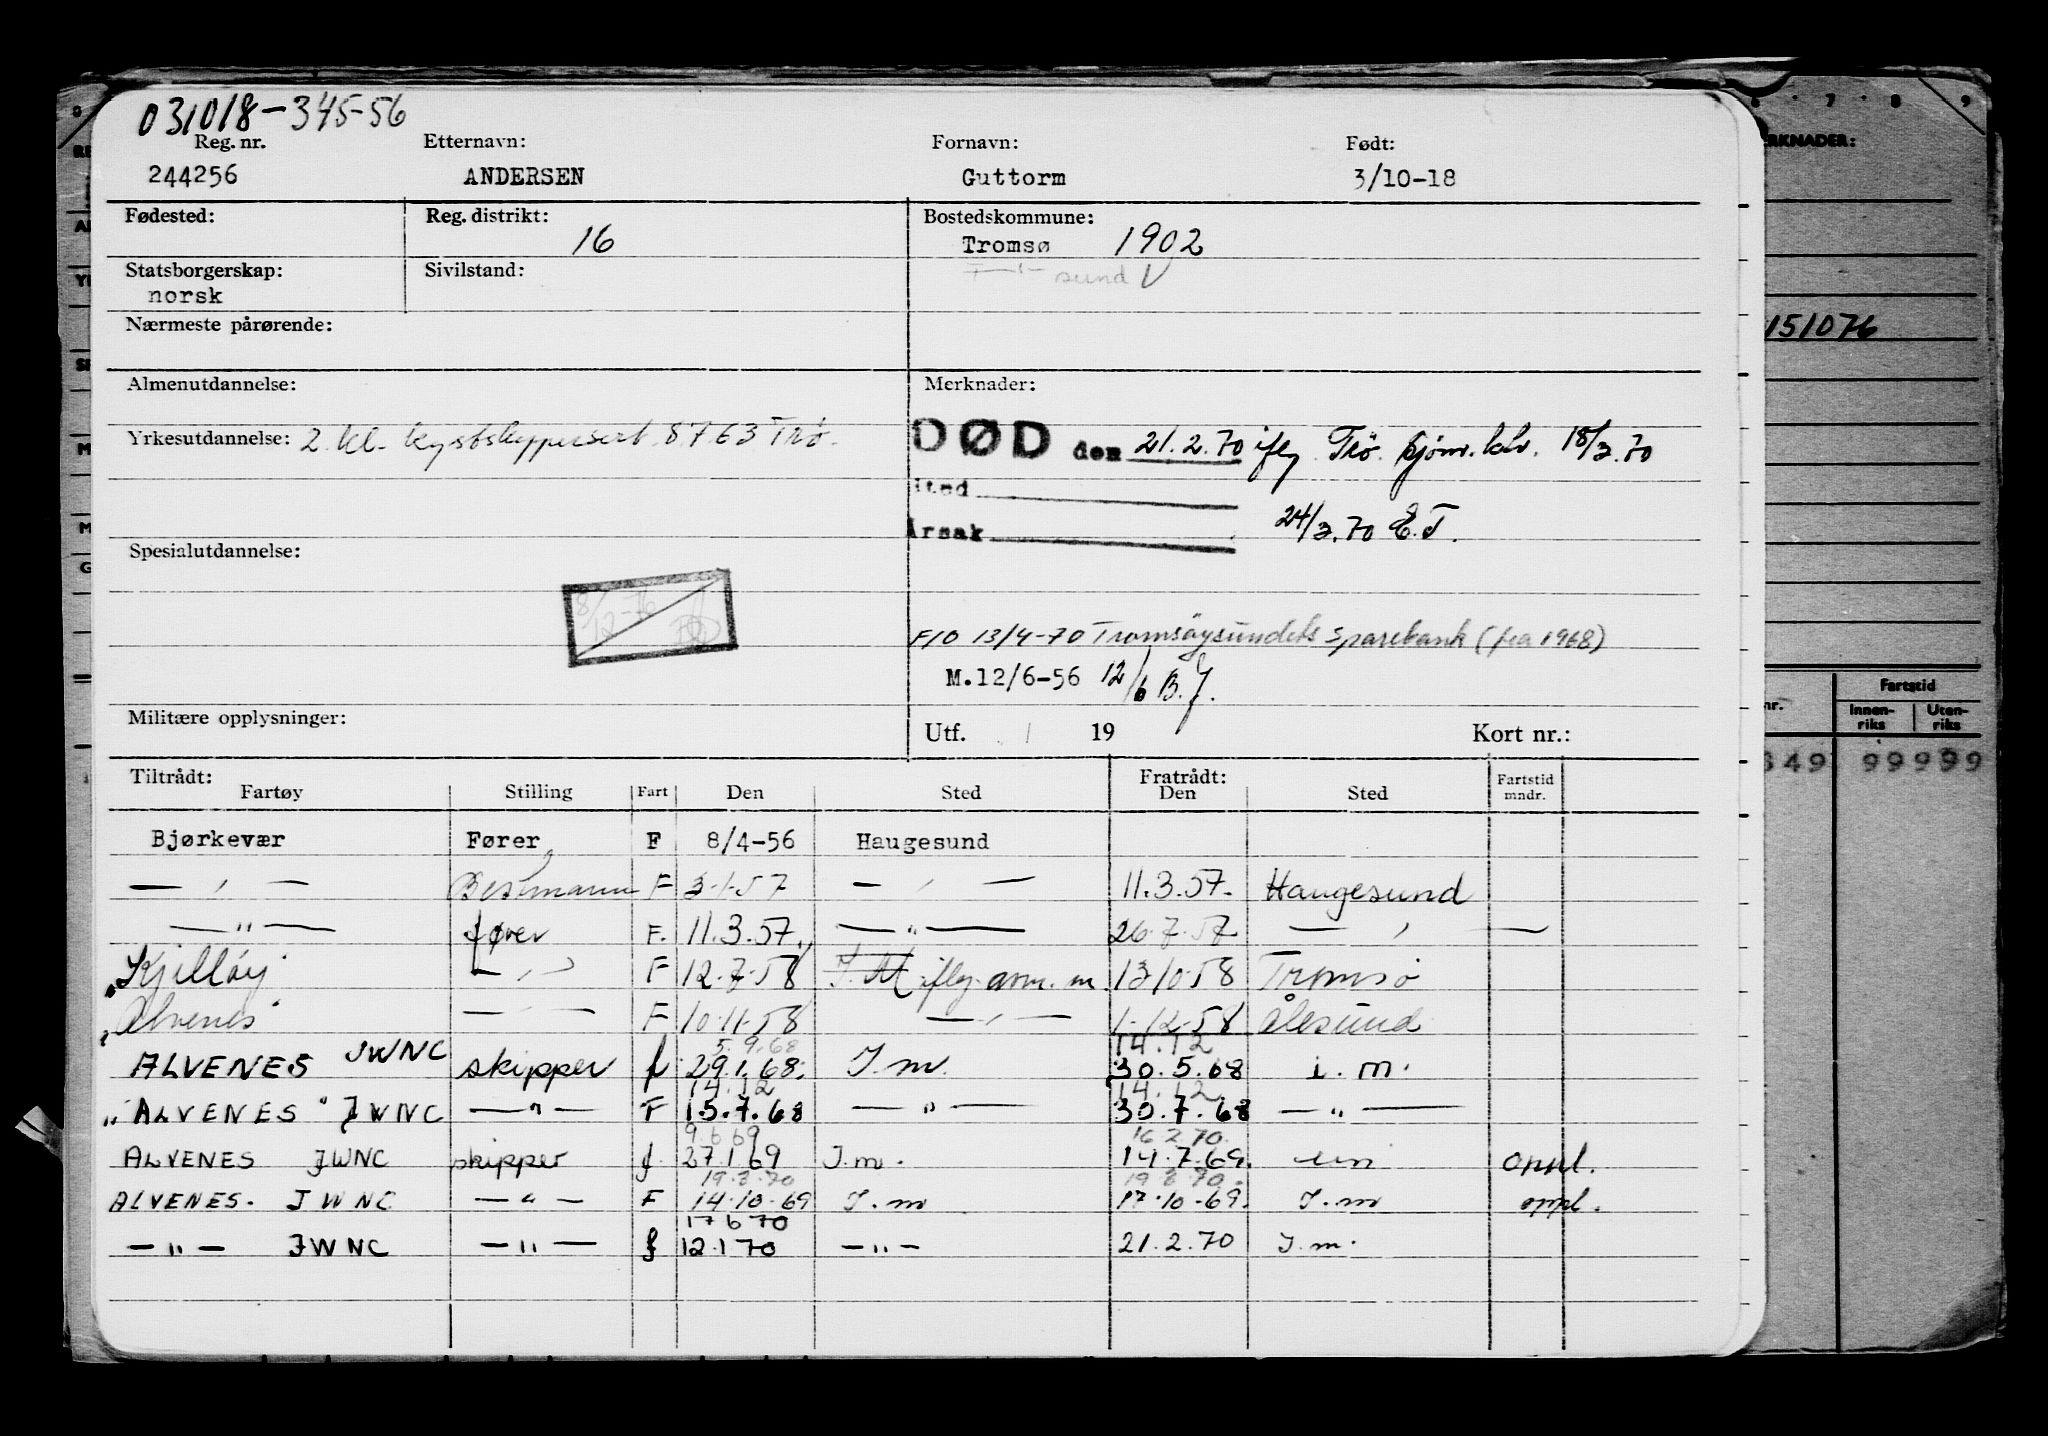 031018-345-56
Reg. nr. Etternavn: Fornavn: Født:
244256 ANDERSEN Guttorm 3/10-18
Fødested: Reg. distrikt: 16 Bostedskommune:
Tromsø 1902
Statsborgerskap: norsk Sivilstand: sund V
Nærmeste pårørende:
151076
Almenutdannelse: Merknader:
Yrkesutdannelse: 2. kl. kystskippersert. 8763 Trø.
DØD den 21.2.70 ifly Trø. sjømr. ktr. 18/3.70
Sted
Årsak 24/3.70 E.T.
Spesialutdannelse:
8/12-76
F/O 13/4-70 Tromsøysundets sparebank (fra 1968)
M.12/6-56 12/6 B.J.
Militære opplysninger: Utf. / 19 Kort nr.:
Tiltrådt: Fratrådt:
Fartøy Stilling Fart Den Sted Den Sted Fartstid mndr.
Bjørkevær Fører F 8/4-56 Haugesund
— " — Bestmann F 3.1.57 — " — 11.3.57. Haugesund
— " — fører F. 11.3.57. — " — 26.7.57 — " —
"Kjelløy" — " — F 12.7.58 I.M. ifly. arm. m 13/10.58 Tromsø
"Alvenes" — " — F 10.11.58 — " — 1.12.58 Ålesund
5.9.68 14.12
ALVENES JWNC skipper f 29.1.68. I.m. 30.5.68 i.m.
14.12 14.12
"ALVENES" JWNC — " — F 15.7.68 — " — 30.7.68 — " —
9.6 69 16 2 70.
ALVENES JWNC skipper f. 27.1 69 I.m. 14.7.69. oppl.
19.3.70 19 3 70.
ALVENES. JWNC — " — F 14.10.69 I.m 17.10.69. I.m oppl.
17 6 70
— " — JWNC — " — f 12.1 70 — " — 21.2.70 I.m.
6 7 8 9
RKNADER:
nr. Fartstid
Innen-riks Uten-riks
349 99999